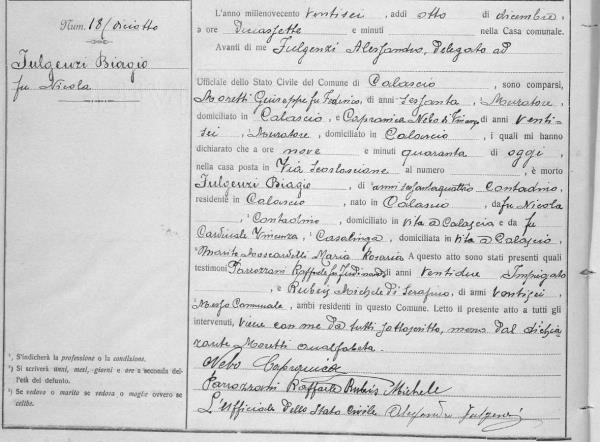 Num. 18 / diciotto
Fulgenzi Biagio
fu Nicola
¹). S'indicherà la professione o la condizione.
²) Si scriverà anni, mesi, giorni e ore a seconda dell'età del defunto.
³) Se vedova o marito se vedova o moglie ovvero se celibe.
L'anno millenovecento ventisei, addì otto di dicembre,
a ore diciassette e minuti nella Casa comunale.
Avanti di me Fulgenzi Alessandro, Delegato ad
Ufficiale dello Stato Civile del Comune di Calascio, sono comparsi,
Moretti Giuseppe fu Federico, di anni sessanta, Muratore,
domiciliato in Calascio, e Capranica Nebo di Vincenzo di anni venti-
sei, Muratore, domiciliato in Calascio, i quali mi hanno
dichiarato che a ore nove e minuti quaranta di oggi,
nella casa posta in Via al numero, è morto
Fulgenzi Biagio, di anni sessantaquattro Contadino,
residente in Calascio, nato in Calascio, da fu Nicola
, Contadino, domiciliato in vita a Calascio e da fu
Cardinale Vincenza, Casalinga, domiciliata in vita a Calascio,
marito Moscardelli Maria Rosaria A questo atto sono stati presenti quali
testimoni Parrozzani Raffaele fu Ferdinando di anni ventidue Impiegato
, e Rubeis Michele di Serafino, di anni ventisei,
Messo Comunale, ambi residenti in questo Comune. Letto il presente atto a tutti gli
intervenuti, viene con me da tutti sottoscritto, meno dal dichia-
rante Moretti analfabeta.
Nebo Capranica
Parrozzani Raffaele Rubeis Michele
L'Ufficiale dello Stato Civile Alessandro Fulgenzi